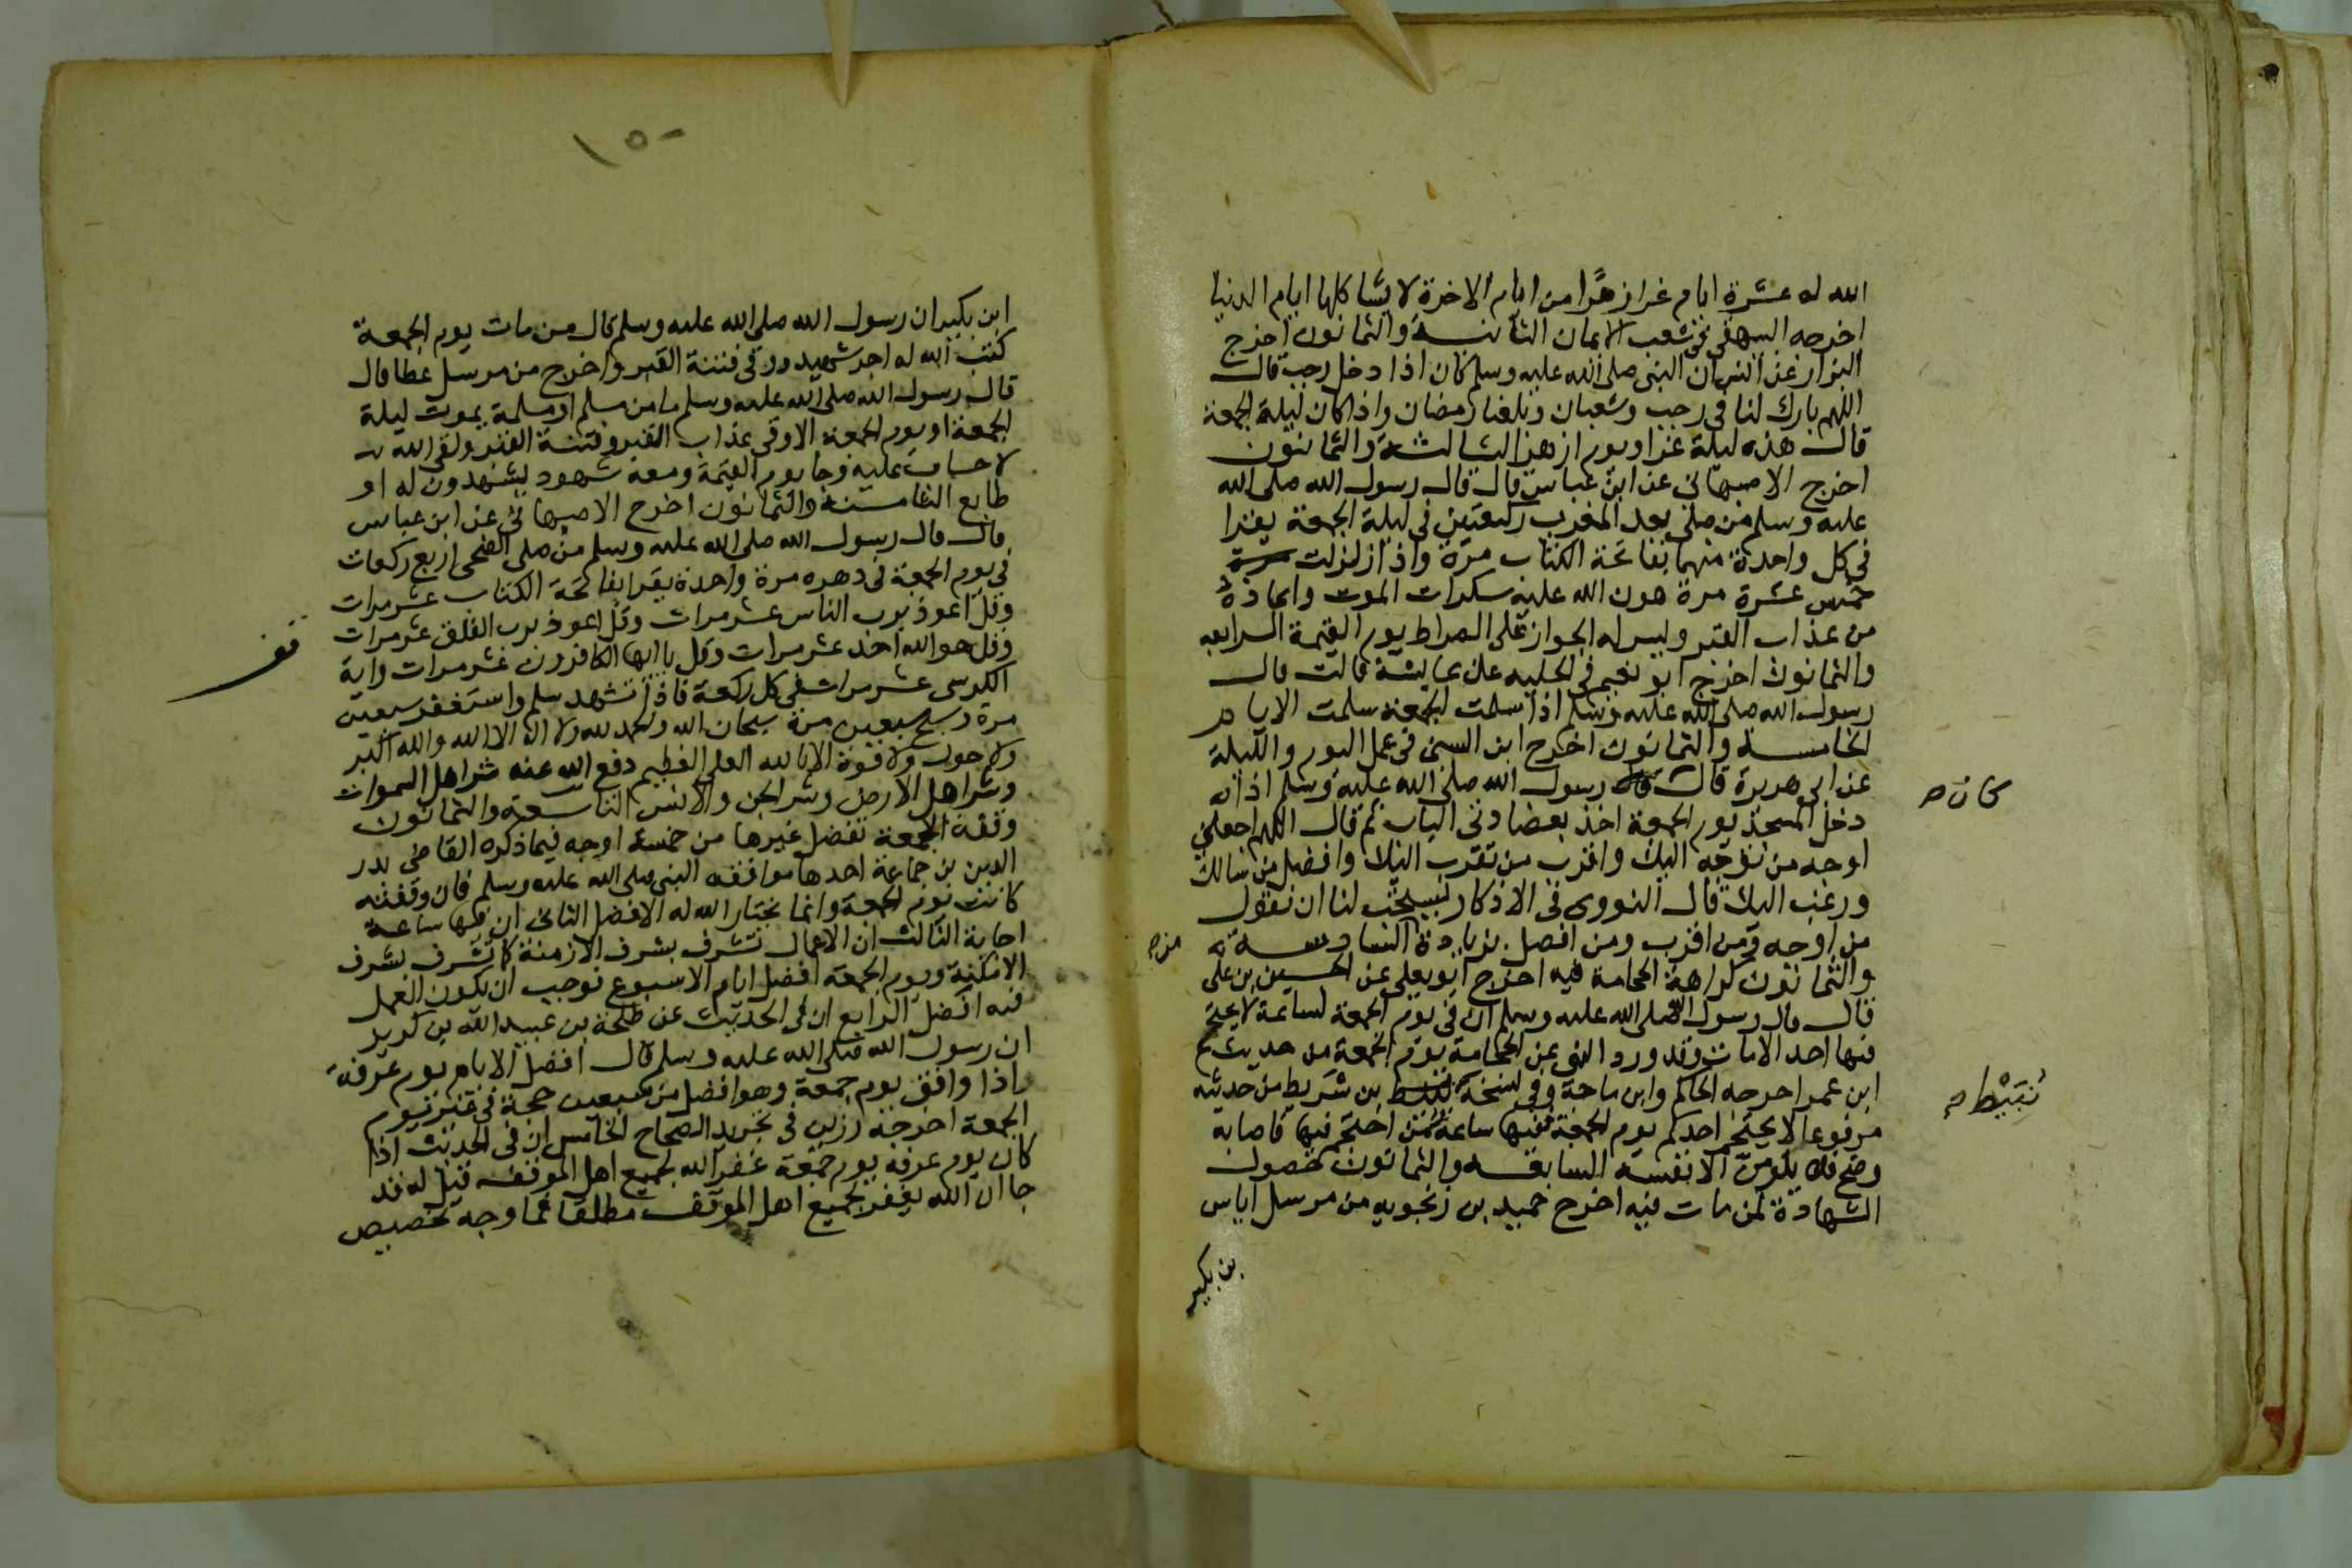 الله له عشرة ايام غرا زهرًا من ايام الاخرة لا يشاكلها ايام الدنيا
اخرجه البيهقي في شعب الايمان الثانية والثمانون اخرج
البزار عن انس ان النبي صلى الله عليه وسلم كان اذا دخل رجب قال
اللهم بارك لنا في رجب وشعبان وبلغنا رمضان واذا كان ليلة الجمعة
قال هذه ليلة غرا ويوم ازهر الثالثة والثمانون
اخرج الاصبهاني عن ابن عباس قال قال رسول الله صلى الله
عليه وسلم من صلى بعد المغرب ركعتين في ليلة الجمعة يقرا
في كل واحدة منهما بفاتحة الكتاب مرة واذا زلزلت
خمس عشرة مرة هون الله عليه سكرات الموت واعاذهُ
من عذاب القبر ويسر له الجواز على الصراط يوم القيمة الرابعه
والثمانون اخرج ابو نعيم في الحليه عن عايشة قالت قال
رسول الله صلى الله عليه وسلم اذا سلمت الجمعة سلمت الايام
الخامسة والثمانون اخرج ابن السني في عمل اليوم والليلة
عن ابي هريرة قال رسول الله صلى الله عليه وسلم اذا
كان ص
دخل المسجد يوم الجمعة اخذ بعضادتي الباب ثم قال اللهم اجعلني
اوجه من توجه اليك واقرب من تقرب اليك وافضل من سالك
ورغب اليك قال النووي في الاذكار يستحب لنا ان نقول
من اوجه ومن اقرب ومن افضل بزيادة السادسة
من ص
والثمانون كراهة الحجامة فيه اخرج ابو يعلى عن الحسين بن علي
قال قال رسول الله صلى الله عليه وسلم ان في يوم الجمعة لساعة لا يحتجم
فيها احد الا مات وقد ورد النهي عن الحجامة يوم الجمعة من حديث
ابن عمر اخرجه الحاكم وابن ماجة وفي نسخة بن شريط من حديثه
نُبَيْط ص
مرفوعا لا يحتجم احدكم يوم الجمعة ففيها ساعة من احتجم فيها فاصابه
وضح فلا يلومن الا نفسه السابعه والثمانون حصول
الشهادة لمن مات فيه اخرج حميد بن زنجويه من مرسل اياس
بن بكير
١٥٠
ابن بكير ان رسول الله صلى الله عليه وسلم قال من مات يوم الجمعة
كتب الله له اجر شهيد ووقى فتنة القبر واخرج من مرسل عطا قال
قال رسول الله صلى الله عليه وسلم ما من مسلم او مسلمة يموت ليلة
الجمعة او يوم الجمعة الا وقى عذاب القبر وفتنة القبر ولقى الله
لا حساب عليه وجا يوم القيمة ومعه شهود يشهدون له او
طابع الثامسنة والثمانون اخرج الاصبهاني عن ابن عباس
قال قال رسول الله صلى الله عليه وسلم من صلى الضحى اربع ركعات
في يوم الجمعة في دهره مرة واحدة يقرا بفاتحة الكتاب عشر مرات
وقل اعوذ برب الناس عشر مرات وقل اعوذ برب الفلق عشر مرات
وقل هو الله احد عشر مرات وقل يا ايها الكافرون عشر مرات واية
الكرسي عشر مرات في كل ركعة فاذا تشهد سلم واستغفر سبعين
مرة وسبح سبعين مرة سبحان الله والحمد لله ولا اله الا الله والله اكبر
ولا حول ولا قوة الا بالله العلي العظيم دفع الله عنه شر اهل السموات
وشر اهل الارض وشر الجن والانس التاسعة والثمانون
وقفة الجمعة تفضل غيرها من خمسة اوجه فيما ذكره القاضي بدر
الدين بن جماعة احدها موافقه النبي صلى الله عليه وسلم فان وقفته
كانت يوم الجمعة وانما يختار الله له الافضل الثاني ان فيها ساعة
اجابة الثالث ان الاعمال تشرف بشرف الازمنة كما تشرف بشرف
الامكنة ويوم الجمعة افضل ايام الاسبوع فوجب ان يكون العمل
فيه افضل الرابع ان في الحديث عن طلحة بن عبيد الله بن كريز
ان رسول الله صلى الله عليه وسلم قال افضل الايام يوم عرفة
اذا وافق يوم جمعة وهو افضل من سبعين حجة في غير يوم
الجمعة اخرجه رزين في تجريد الصحاح الخامس ان في الحديث اذا
كان يوم عرفة يوم جمعة غفر الله لجميع اهل الموقف قيل له قد
جا ان الله يغفر لجميع اهل الموقف مطلقا فما وجه تخصيص